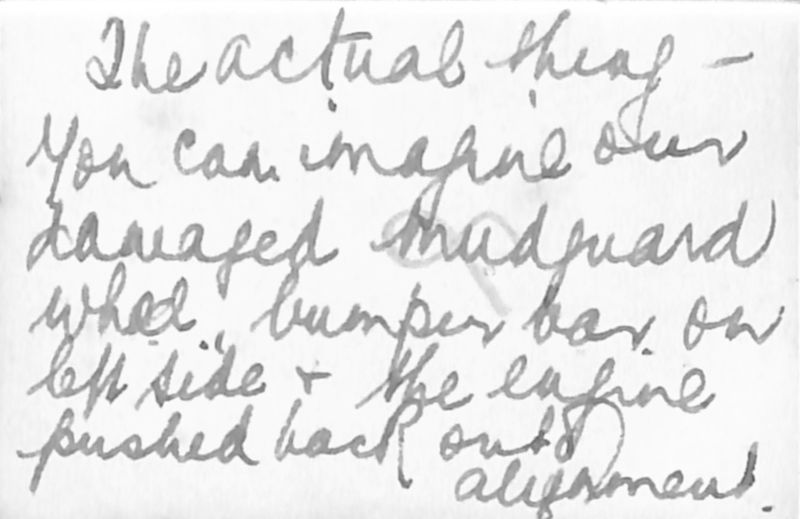 The actual thing –
You can imagine our
damaged mudguard
wheel, bumper bar on
left side + the engine
pushed back out of
alignment.